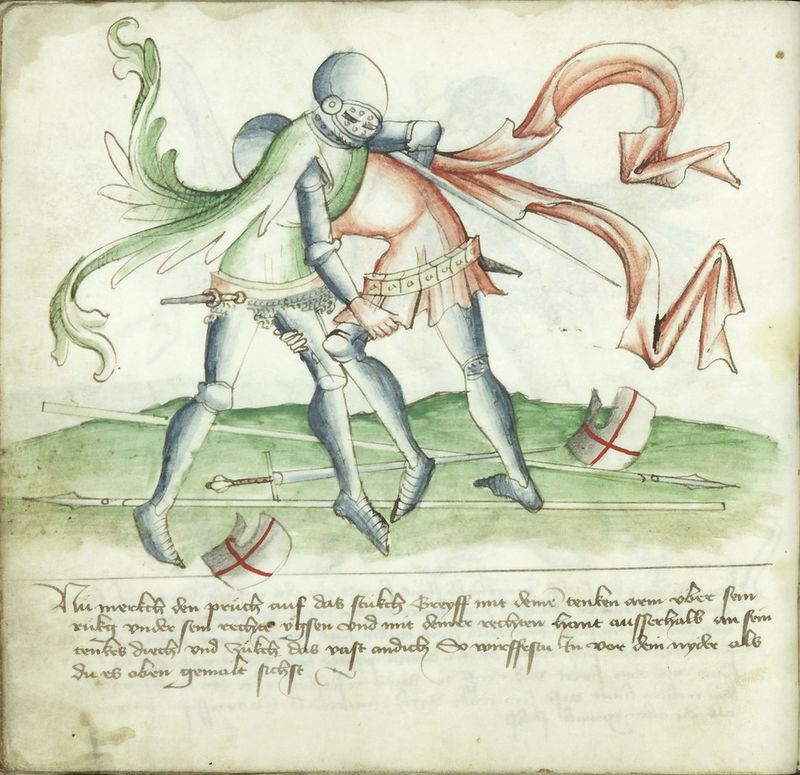 Nu merckh den pruch auf das stukch Greyff mit deme tenken arm vber sein
rukg vnder sein rechte vchsen vnd mit deiner rechten hant ausserhalb an sein
tenkes diech vnd zukch das vast an dich So wirffestu In vor dem nyder als
du es oben gemalt sichst